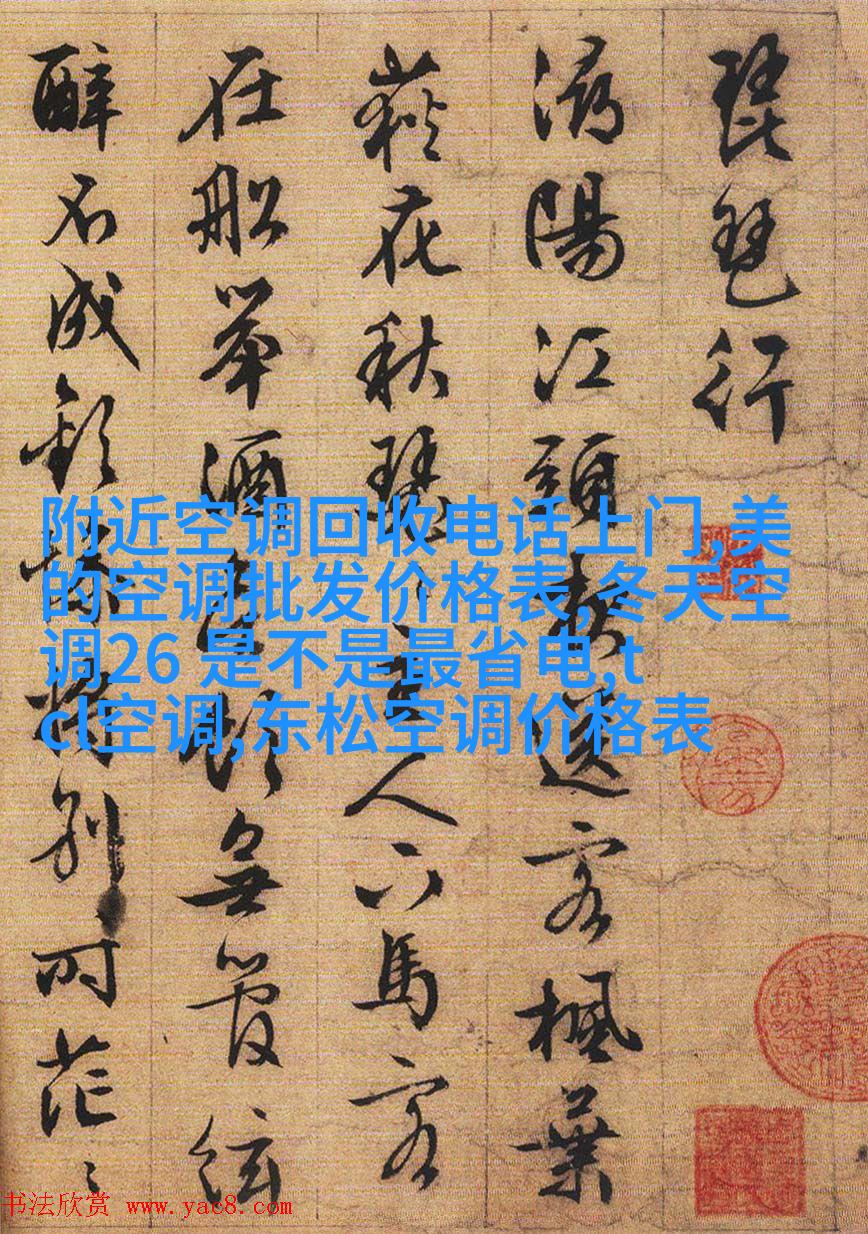 琵琶行
潯陽江頭夜送客楓葉
荻花秋瑟〻主人下馬客
在船舉酒欲飲無管絃
醉不成歡慘將別〻時茫〻
附近空调回收电话上门,美
的空调批发价格表,冬天空
调26 是不是最省电,t
cl空调,东松空调价格表
书法欣赏 www.yac8.com